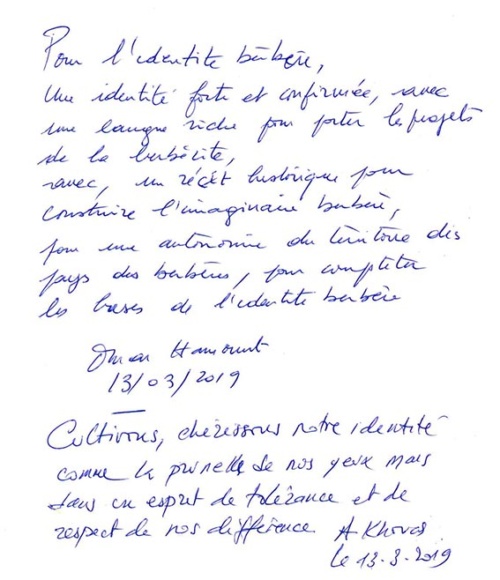 Pour l'identite berbère,
Une identité forte et confirmée, avec
une langue riche pour porter les projets
de la berbérité,
avec, un récit historique pour
construire l'imaginaire berbère,
pour une autonomie du territoire des
pays des berbères, pour compléter
les bases de l'identite berbère
Omar Hamourit
13/03/2019
Cultivons, chérissons notre identité
comme la prunelle de nos yeux mais
dans un esprit de tolérance et de
respect de nos différence. A Khovas
le 13.3.2019